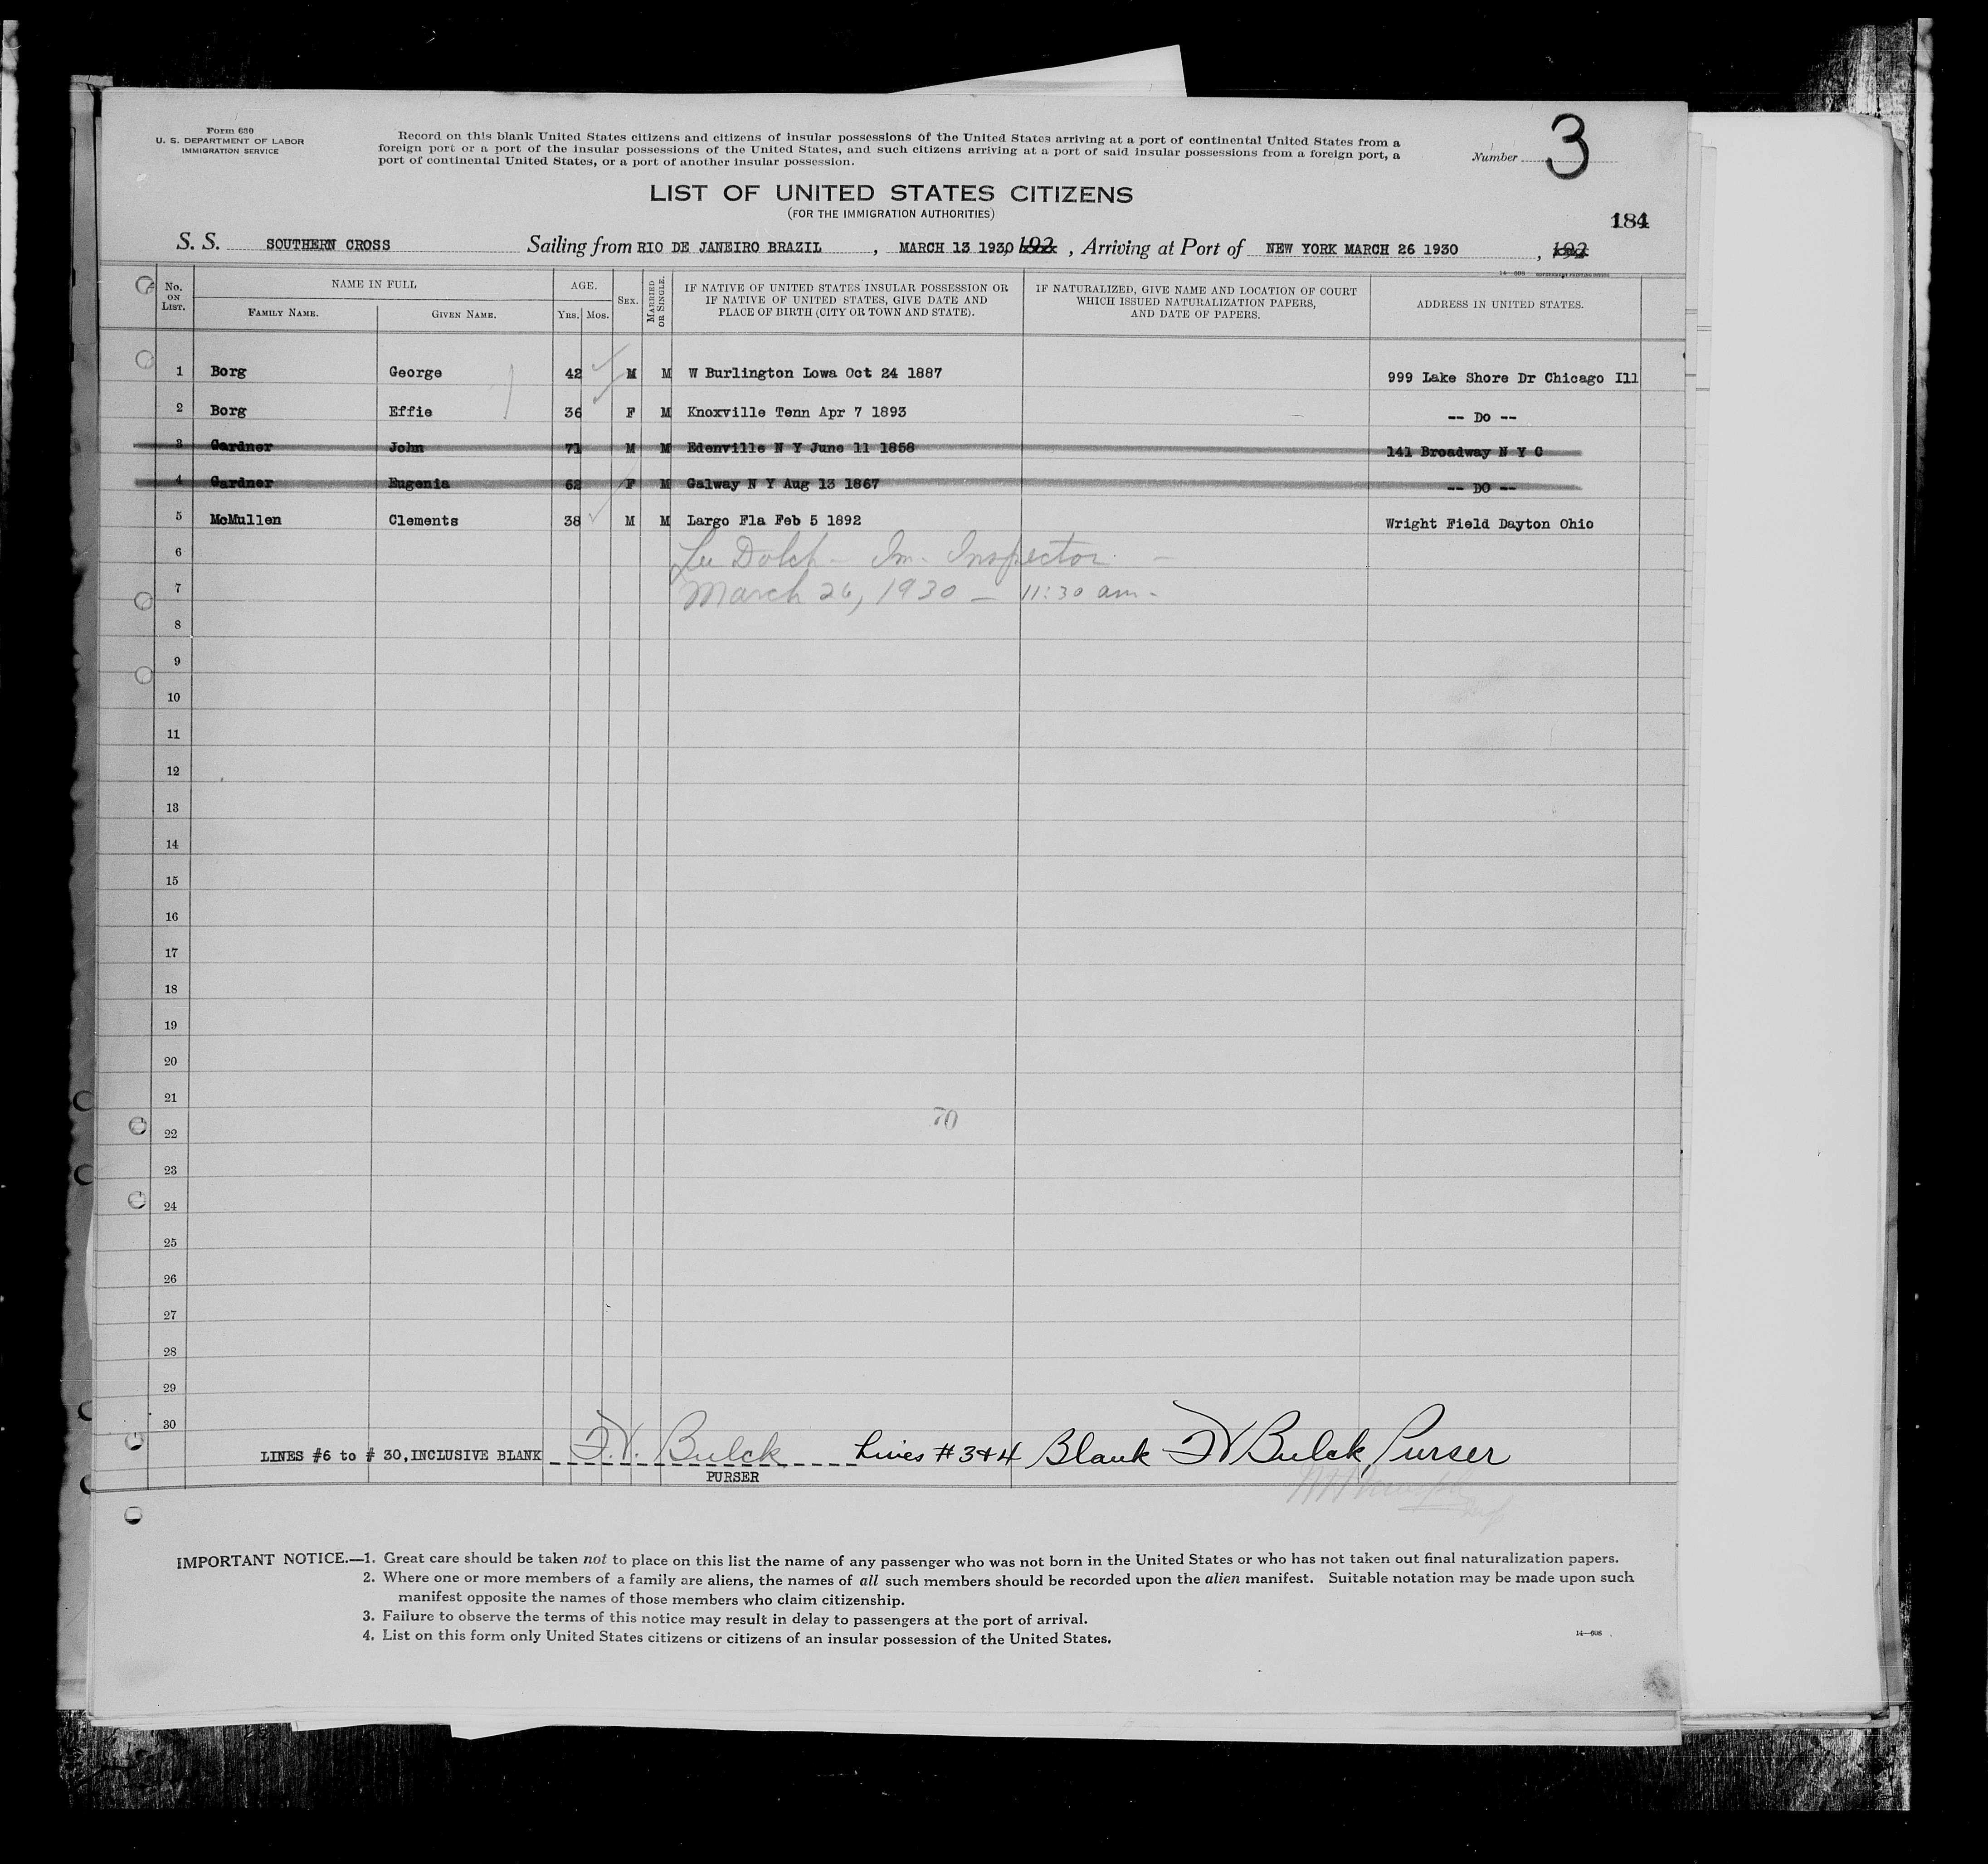 Form 630
U. S. DEPARTMENT OF LABOR
IMMIGRATION SERVICE
Record on this blank United States citizens and citizens of insular possessions of the United States arriving at a port of continental United States from a
foreign port or a port of the insular possessions of the United States, and such citizens arriving at a port of said insular possessions from a foreign port, a
port of continental United States, or a port of another insular possession.
Number 3
LIST OF UNITED STATES CITIZENS
(FOR THE IMMIGRATION AUTHORITIES)
184
S. S. SOUTHERN CROSS Sailing from RIO DE JANEIRO BRAZIL , MARCH 13 1930 192 , Arriving at Port of NEW YORK MARCH 26 1930 , 192
No. ON LIST. NAME IN FULL FAMILY NAME. GIVEN NAME. AGE. YRS. MOS. SEX. MARRIED OR SINGLE. IF NATIVE OF UNITED STATES INSULAR POSSESSION OR IF NATIVE OF UNITED STATES, GIVE DATE AND PLACE OF BIRTH (CITY OR TOWN AND STATE). IF NATURALIZED, GIVE NAME AND LOCATION OF COURT WHICH ISSUED NATURALIZATION PAPERS, AND DATE OF PAPERS. ADDRESS IN UNITED STATES.
1 Borg George 42 M M W Burlington Iowa Oct 24 1887 999 Lake Shore Dr Chicago Ill
2 Borg Effie 36 F M Knoxville Tenn Apr 7 1893 -- Do --
3 Gardner John 71 M M Edenville N Y June 11 1858 141 Broadway N Y C
4 Gardner Eugenia 62 F M Galway N Y Aug 13 1867 -- DO --
5 McMullen Clements 38 M M Largo Fla Feb 5 1892 Wright Field Dayton Ohio
6 Lee Dolch - Im. Inspector -
7 March 26, 1930 - 11:30 am -
8
9
10
11
12
13
14
15
16
17
18
19
20
21
70
22
23
24
25
26
27
28
29
30
LINES #6 to # 30, INCLUSIVE BLANK F.V. Bulck Lines # 3 & 4 Blank FV Bulck, Purser
PURSER
IMPORTANT NOTICE.—1. Great care should be taken not to place on this list the name of any passenger who was not born in the United States or who has not taken out final naturalization papers.
2. Where one or more members of a family are aliens, the names of all such members should be recorded upon the alien manifest. Suitable notation may be made upon such
manifest opposite the names of those members who claim citizenship.
3. Failure to observe the terms of this notice may result in delay to passengers at the port of arrival.
4. List on this form only United States citizens or citizens of an insular possession of the United States.
14—608